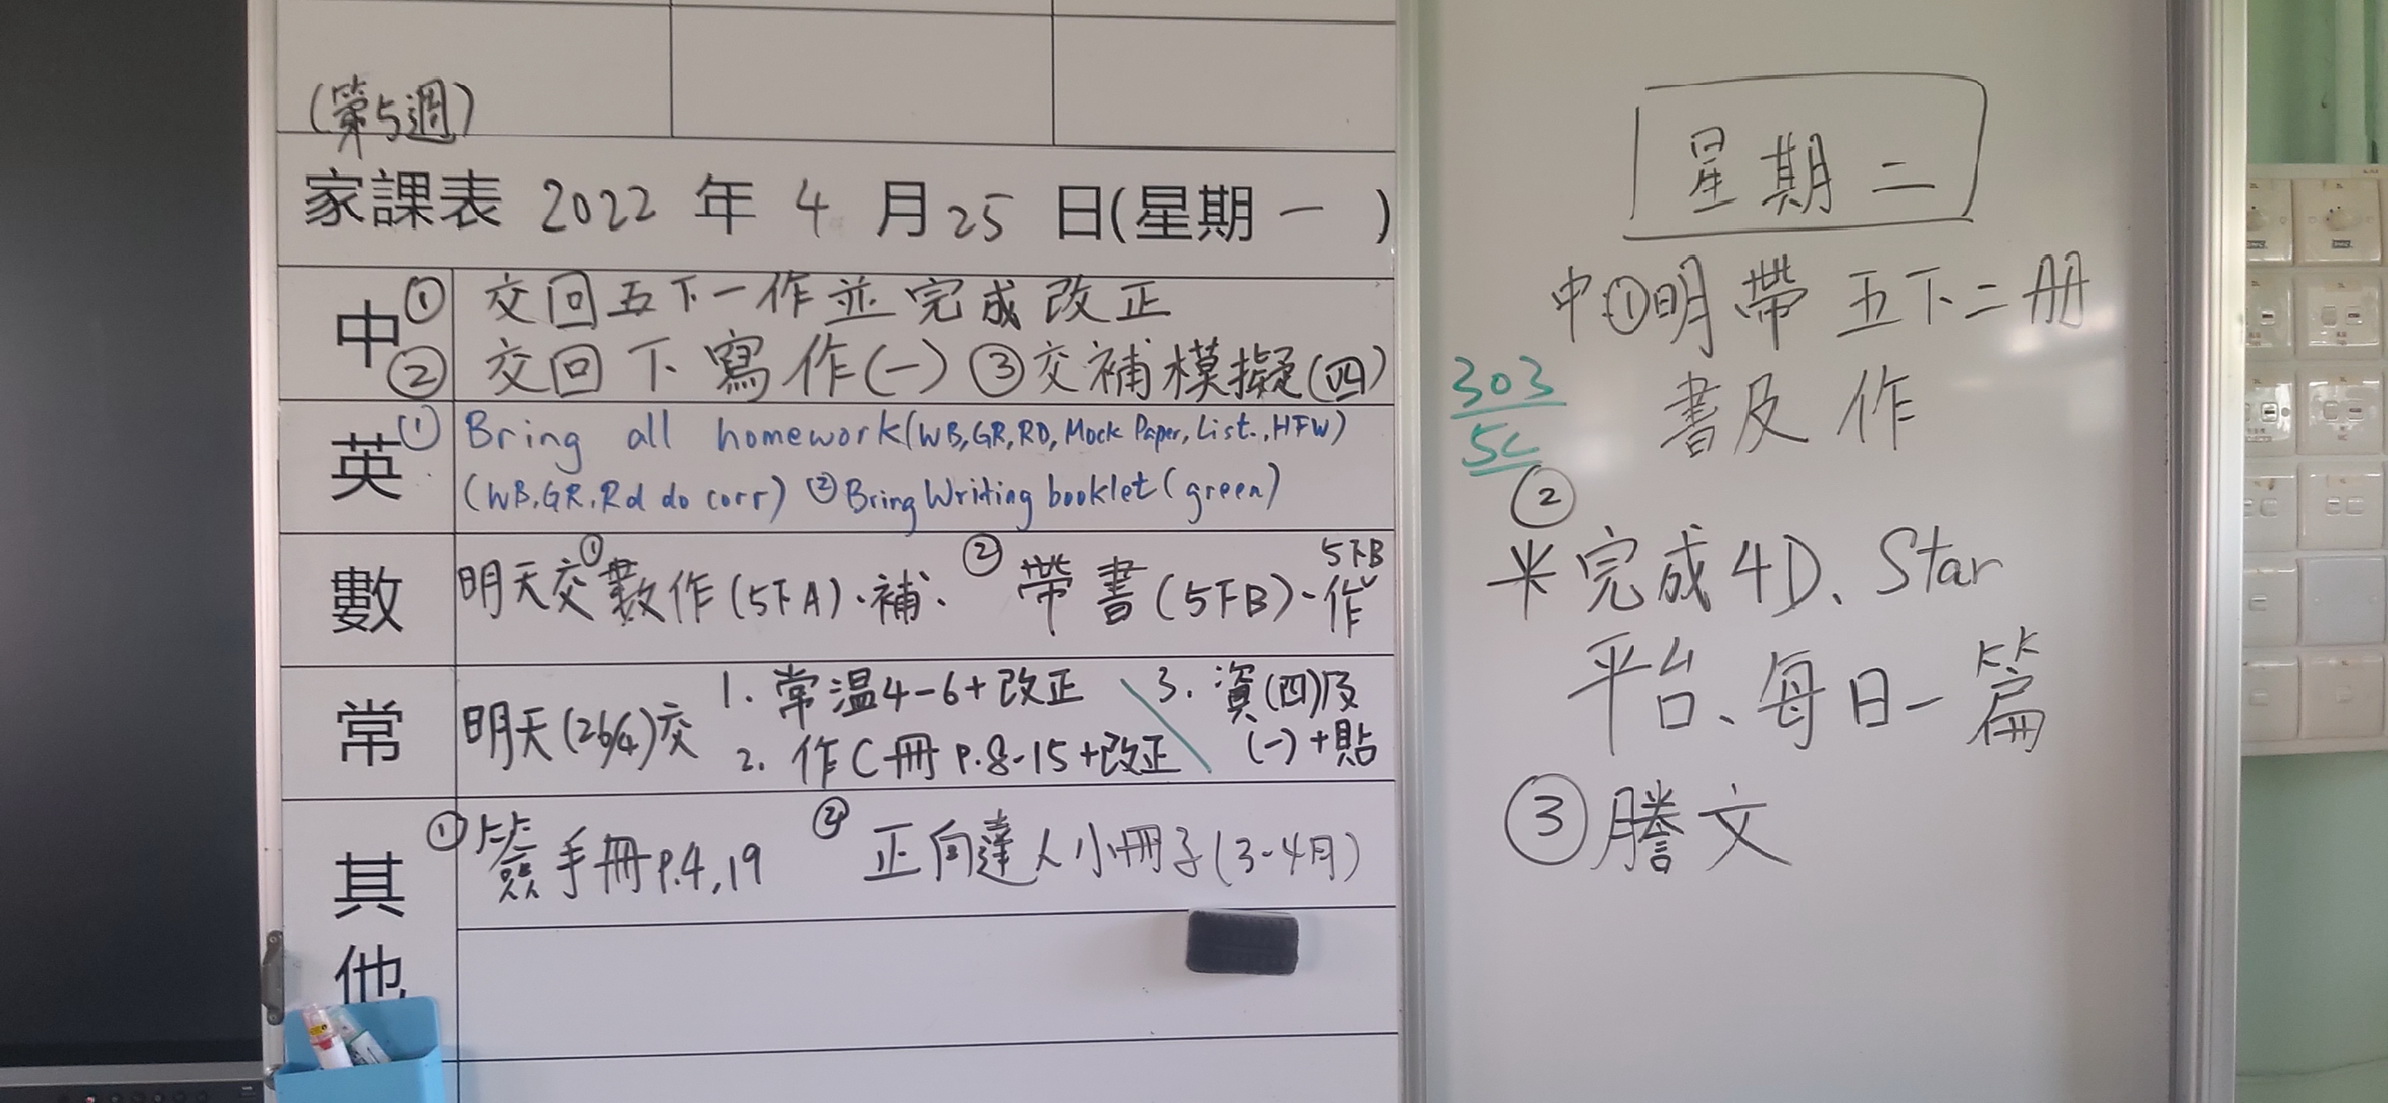 (第5週)
家課表 2022 年 4 月 25 日(星期 一 )
中 ① 交回五下一作並完成改正
② 交回下寫作(一) ③交補模擬(四)
英 ① Bring all homework(WB,GR,RD,Mock Paper,List.,HFW)
(WB,GR,Rd do corr) ② Bring Writing booklet(green)
數 明天交①數作(5下A)、補、 ② 帶書(5下B)、作
5下B
常 明天(26/4)交 1. 常温4-6+改正
2. 作C冊 P.8-15+改正
3. 資(四)及
(一)+貼
其他 ① 簽手冊P.4,19 ② 正向達人小冊子(3-4月)
星期二
中①明帶五下二冊
書及作
303
5C
②
*完成4D、Star
平台、每日一篇
③謄文